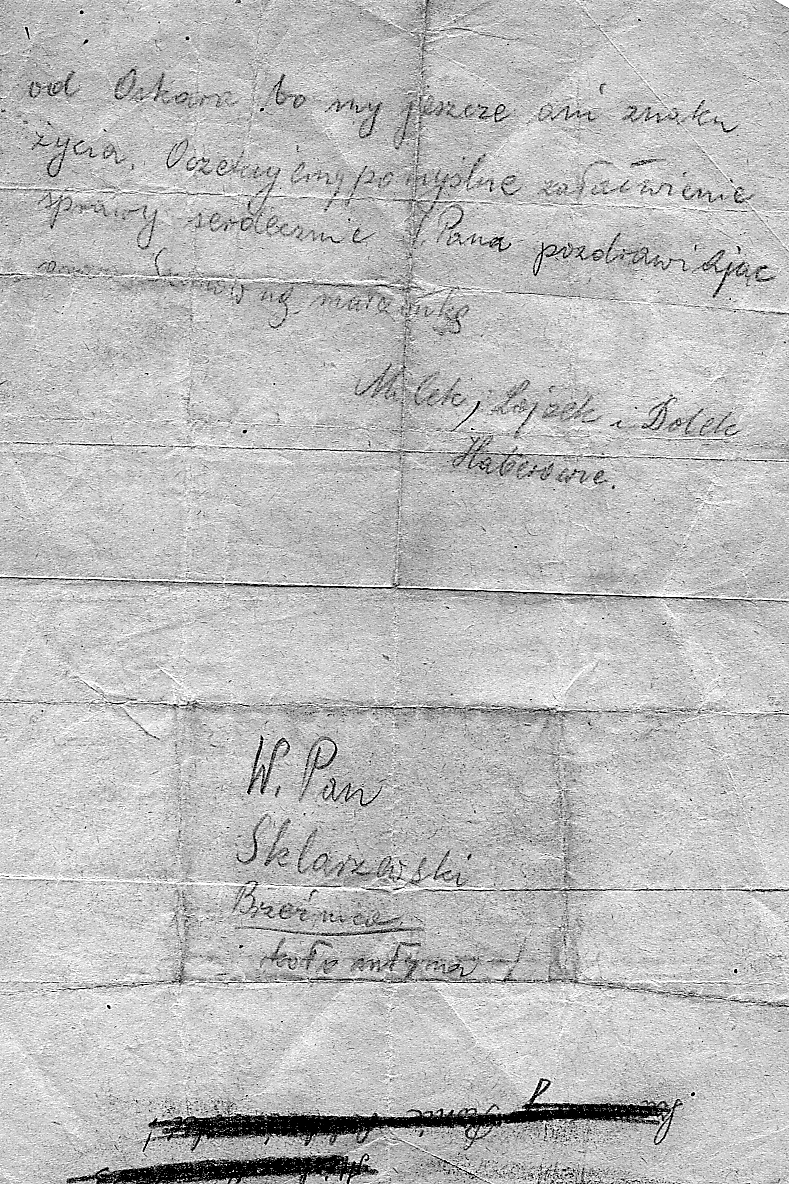 od Oskara bo my jeszcze ani znaku
życia. Oczekujemy pomyślne załatwienie
sprawy serdecznie W. Pana pozdrawiając
Milek, Lajzek i Dolek
Haberowie.
W. Pan
Sklarzewski
Brzeźnica
koło młyna